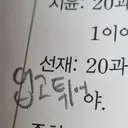 지윤: 20과
1이
선재: 20과
업고튀어야.